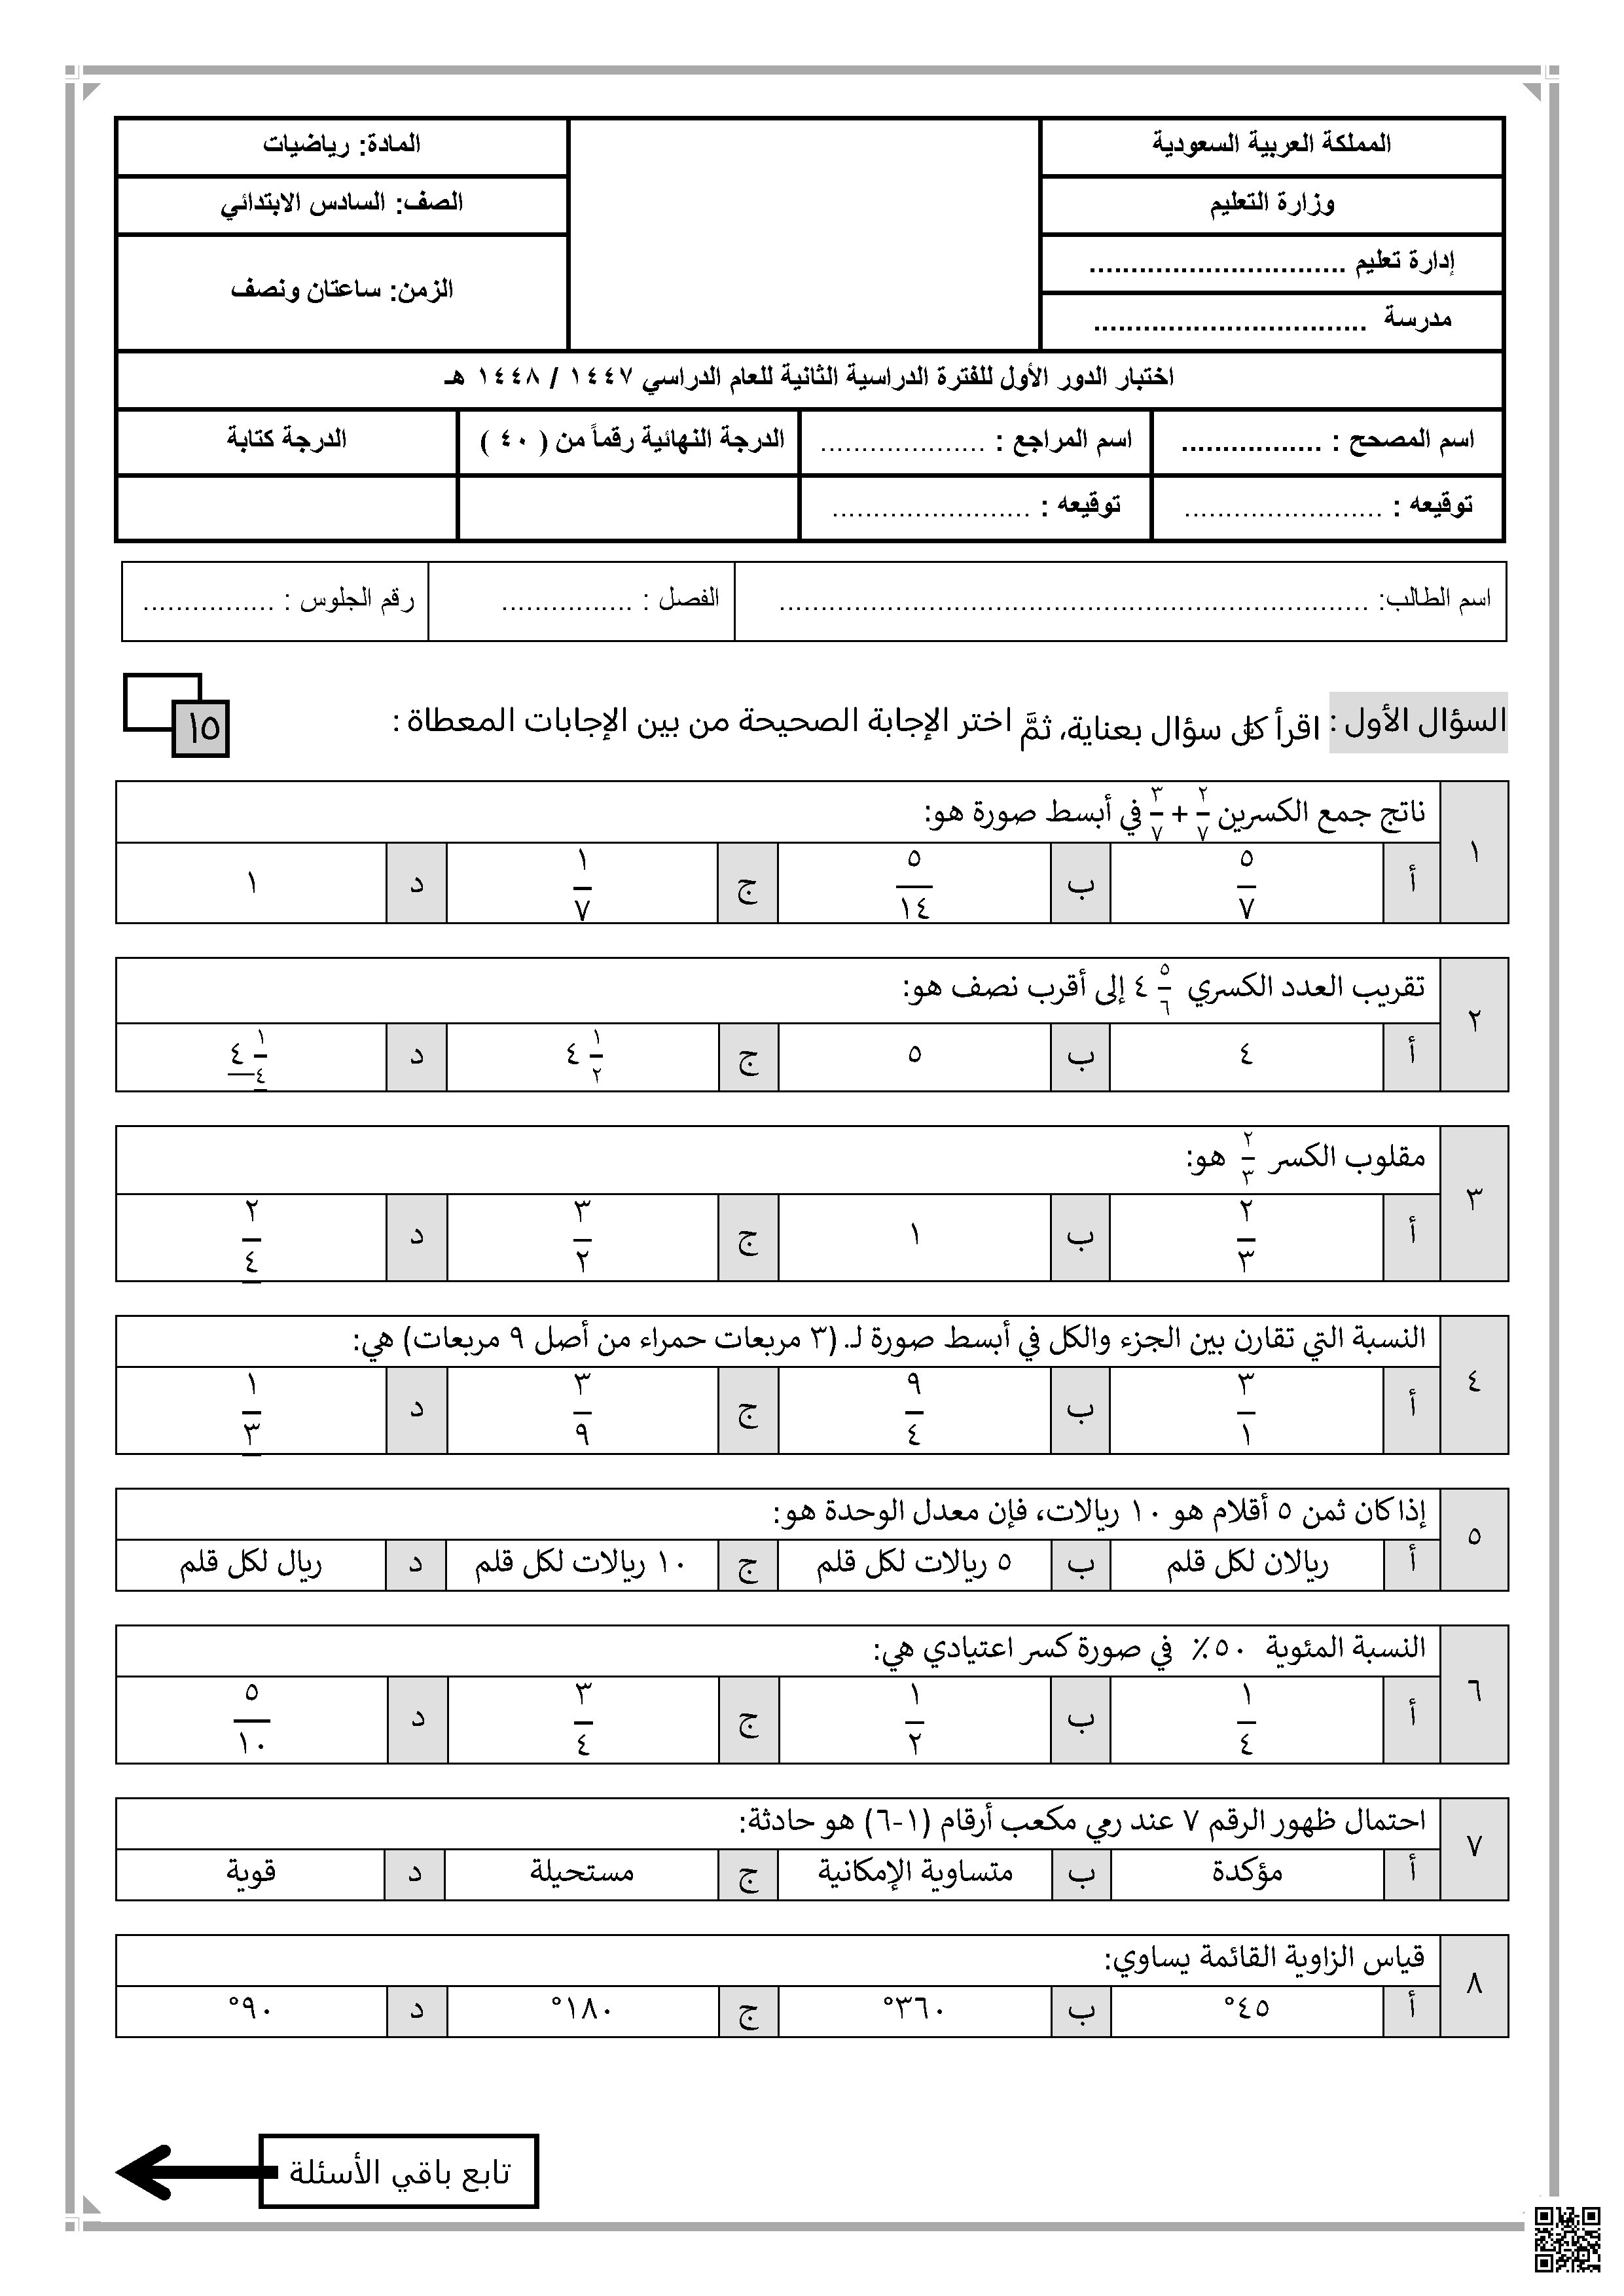 المملكة العربية السعودية
المادة: رياضيات
وزارة التعليم
الصف: السادس الابتدائي
إدارة تعليم ...............................
الزمن: ساعتان ونصف
مدرسة .................................
اختبار الدور الأول للفترة الدراسية الثانية للعام الدراسي ١٤٤٧ / ١٤٤٨ هـ
اسم المصحح : ................. اسم المراجع : .................... الدرجة النهائية رقماً من ( ٤٠ ) الدرجة كتابة
توقيعه : ........................ توقيعه : ........................
اسم الطالب: ....................................................................... الفصل : ................ رقم الجلوس : ................
السؤال الأول : اقرأ كل سؤال بعناية، ثمَّ اختر الإجابة الصحيحة من بين الإجابات المعطاة :
١٥
١ ناتج جمع الكسرين ٢/٧ + ٣/٧ في أبسط صورة هو:
أ ٥/٧ ب ٥/١٤ ج ١/٧ د ١
٢ تقريب العدد الكسري ٤ ٥/٦ إلى أقرب نصف هو:
أ ٤ ب ٥ ج ٤ ١/٢ د ٤ ١/٤
٣ مقلوب الكسر ٢/٣ هو:
أ ٢/٣ ب ١ ج ٣/٢ د ٢/٤
٤ النسبة التي تقارن بين الجزء والكل في أبسط صورة لـ (٣ مربعات حمراء من أصل ٩ مربعات) هي:
أ ٣/١ ب ٩/٤ ج ٣/٩ د ١/٣
٥ إذا كان ثمن ٥ أقلام هو ١٠ ريالات، فإن معدل الوحدة هو:
أ ريالان لكل قلم ب ٥ ريالات لكل قلم ج ١٠ ريالات لكل قلم د ريال لكل قلم
٦ النسبة المئوية ٥٠٪ في صورة كسر اعتيادي هي:
أ ١/٤ ب ١/٢ ج ٣/٤ د ٥/١٠
٧ احتمال ظهور الرقم ٧ عند رمي مكعب أرقام (١-٦) هو حادثة:
أ مؤكدة ب متساوية الإمكانية ج مستحيلة د قوية
٨ قياس الزاوية القائمة يساوي:
أ ٤٥° ب ٣٦٠° ج ١٨٠° د ٩٠°
تابع باقي الأسئلة